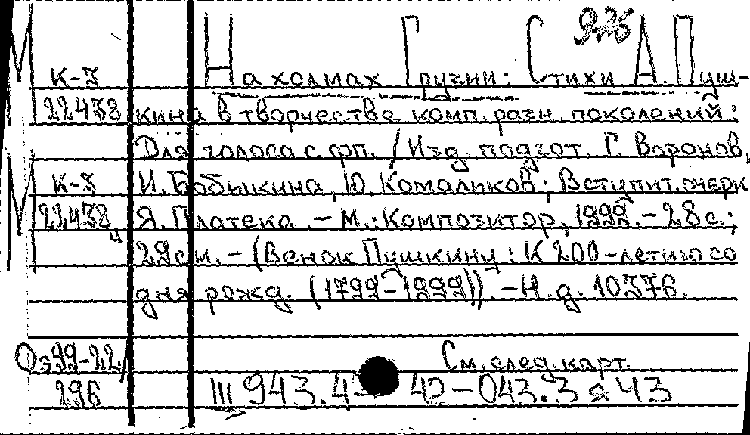 926
М
К-3 На холмах Грузии: Стихи А. Пуш-
22478 кина в творчестве комп. разн. поколений:
Для голоса с фп. / Изд. подгот. Г. Воронов,
М К-3 И. Бобыкина, Ю. Комальков; Вступит. очерк
22478 Я. Платека. - М.: Композитор, 1999. - 28 с.;
29 см. - (Венок Пушкину: К 200-летию со
дня рожд. (1799-1999)). - Н. д. 10376.
Оз99-22/ См. след. карт.
296 III 943.4- 42-043.3 я 43